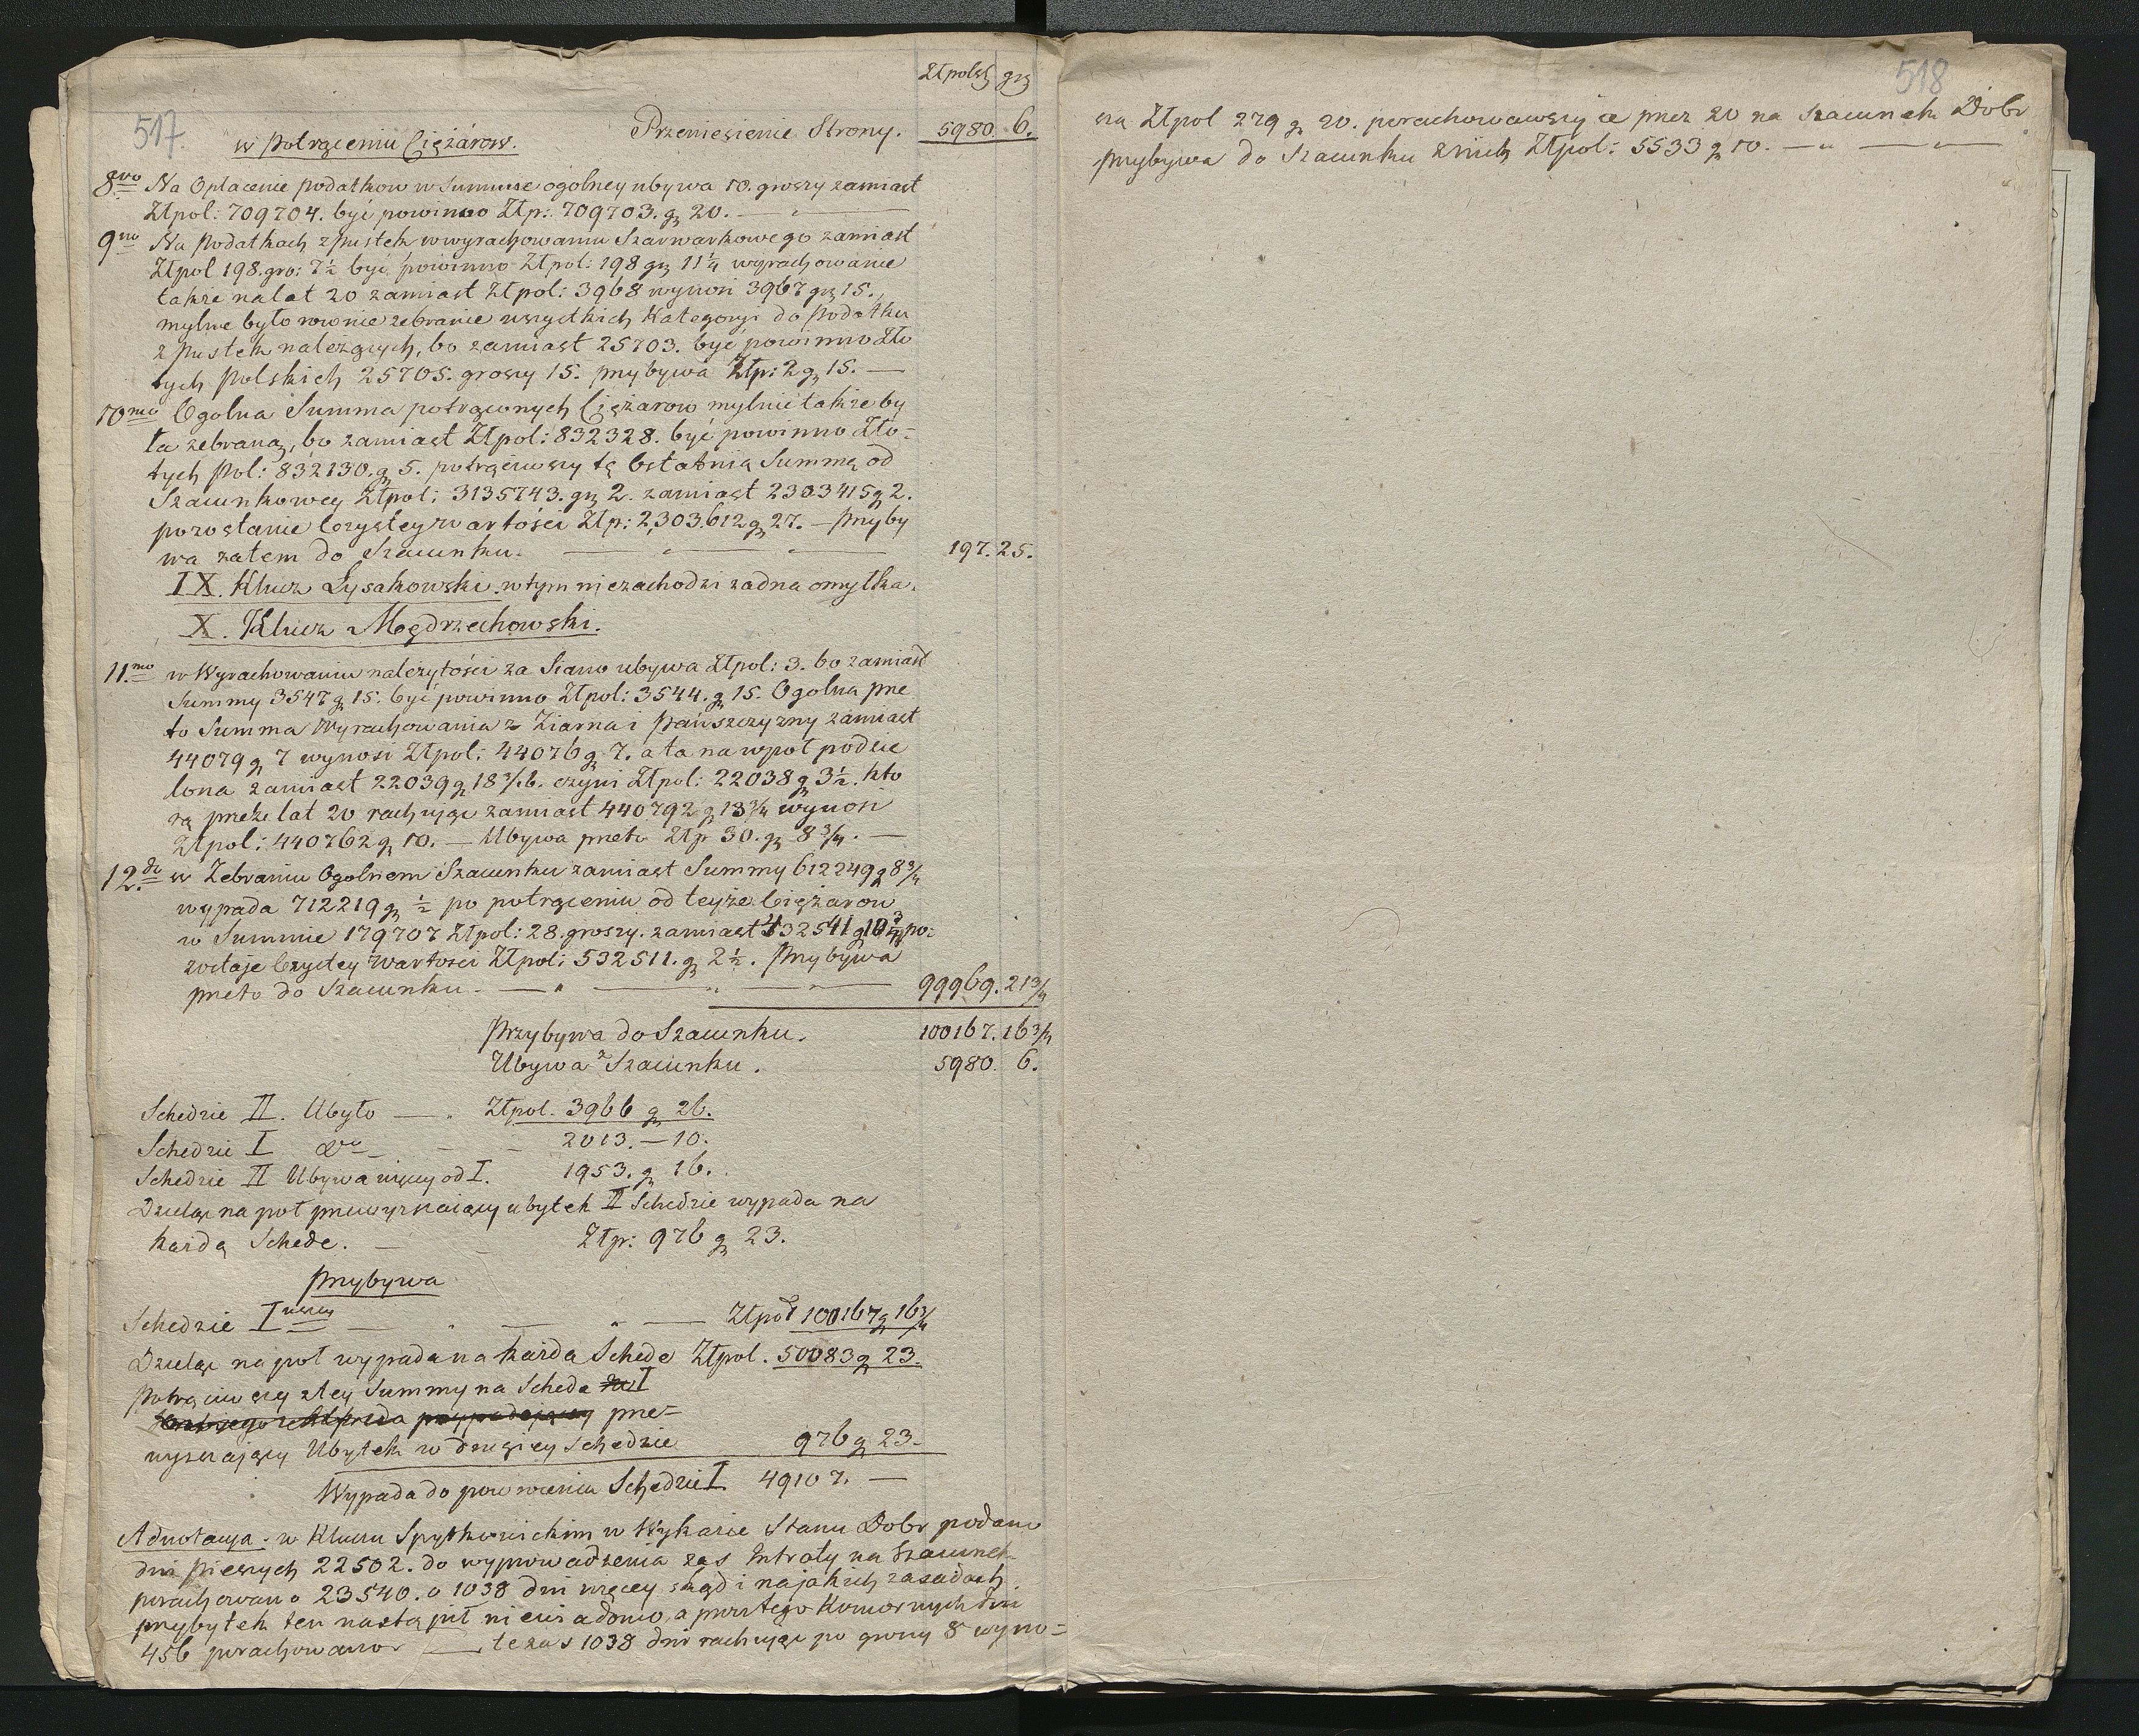 Ztpolsk grz
517.
Przeniesienie Strony. 5980 6.
w potrąceniu Ciężarow.
8vo Na Opłacenie podatkow w Summie ogolney ubywa 10. groszy zamiast
Ztpol: 709704. być powinno Ztp: 709703. gr 20.
9no Na Podatkach z pustek w wyrachowaniu Szarwarkowego zamiast
Ztpol 198. gro: 7½ być powinno Ztpol: 198 grz 11¼ wyrachowanie
także na lat 20 zamiast Ztpol: 3968 wynosi 3967 grz 15.
mylne było rownie zebranie wszystkich Kategoryi do Podatku
z Pustek należących, bo zamiast 25703. być powinno Zło
tych Polskich 25705. groszy 15. przybywa Ztp: 2 gr 15. —
10mo Ogolna Summa potrąconych Ciężarow mylnie także by
ła zebraną, bo zamiast Ztpol: 832328. być powinno Zło=
tych Pol: 832130. gr 5. potrąciwszy tę Ostatnią Summę od
Szacunkowey Ztpol: 3135743. grz 2. zamiast 2303415 gr 2.
pozostanie Czystey wartości Ztp: 2,303.612 gr 27. — Przyby
wa zatem do Szacunku. — 197. 25.
IX. Klucz Łysakowski. w tym nie zachodzi żadna omyłka.
X. Klucz Mędrzechowski.
11.mo w Wyrachowaniu należytości za Siano ubywa Ztpol: 3. bo zamiast
Summy 3547 gr 15. być powinno Ztpol: 3544. gr 15. Ogolna prze
to Summa Wyrachowania z Ziarna i Pańszczyzny zamiast
44079 gr 7 wynosi Ztpol: 44076 gr 7. a ta na wpoł podzie
lona zamiast 22039 gr 18 3/16. czyni Ztpol: 22038 gr 3½. kto
rą przez lat 20 rachując zamiast 440792 gr 18¾ wynosi
Ztpol: 440762 gr 10. — Ubywa przeto Ztp 30. gr 8¾. —
12.do w Zebraniu Ogolnem Szacunku zamiast Summy 612249 gr 8¾
wypada 712219 gr ½ po potrąceniu od teyże Ciężarow
w Summie 179707 Ztpol: 28. groszy. zamiast 432541 gr 10¾ po=
zostaje Czystey Wartości Ztpol: 532511. gr 2½. Przybywa
przeto do Szacunku. — 99969. 21¾
Przybywa do Szacunku. 100167. 16¾
Ubywa z Szacunku. 5980. 6.
Schedzie II. Ubyło — Ztpol. 3966 gr 26.
Schedzie I do — 2013. — 10.
Schedzie II Ubywa więcy od I. 1953. gr 16.
Dzieląc na poł przewyższaiący ubytek II Schedzie wypada na
każdą Schede. — Ztp: 976 gr 23.
Przybywa
Schedzie Iwszey — Ztpol 100167 gr 16¾
Dzieląc na poł wypada na każda Schede Ztpol. 50083 gr 23.
Potrąciwszy z tey Summy na Scheda I
prze=
wyszaiący Ubytek w drugiey Schedzie 976 gr 23.
Wypada do powrocenia Schedzie I 49107. —
Adnotacya: w Kluczu Spytkowickim w Wykazie Stanu Dobr podano
dni Pieszych 22502. do wyprowadzenia zas Intraty na Szacunek
porachowano 23540. o 1038 dni więcey skąd i na jakich zasadach
przybytek ten nastąpił niewiadomo, a procz tego Komornych dni
456 porachowano — te zas 1038 dni rachując po groszy 8 wyno=
518
szą Ztpol 279 gr 20. porachowawszy ie przez 20 na Szacunek Dobr
przybywa do Szacunku z nich Ztpol: 5533 gr 10. —